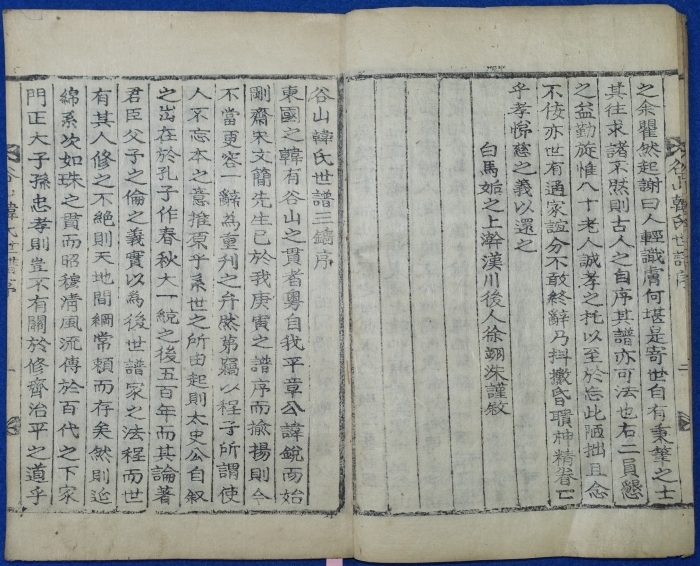 之余瞿然起謝曰人輕識膚何堪是寄世自有秉筆之士
其往求諸不然則古人之自序其譜亦可法也右二員懇
之益勤旋惟八十老人誠孝之托以至於忘此陋拙且念
不佞亦世有通家誼分不敢終辭乃抖擻昏聵神精眷
乎孝悌慈之義以還之
白馬姤之上澣漢川後人徐翊洙謹敘
谷山韓氏世譜序
二
谷山韓氏世譜三鐫序
東國之韓有谷山之貫者粵自我平章公諱銳而始
剛齋宋文簡先生已於我庚寅之譜序而揄揚則今
不當更容一辭為重刊之弁然第竊以程子所謂使
人不忘本之意推原乎系世之所由起則太史公自叙
之出在於孔子作春秋大一統之後五百年而其論著
君臣父子之倫之義實以為後世譜家之法程而世
有其人修之不絶則天地間綱常頼而存矣然則近
綿系次如珠之貫而昭穆凊風流傳於百代之下家
門正大子孫忠孝則豈不有關於修齊治平之道乎
谷山韓氏世譜序
一